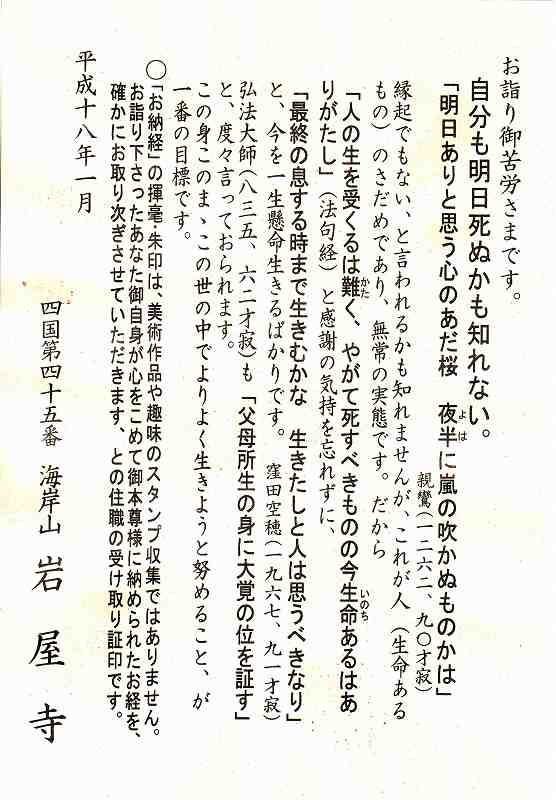 お詣り御苦労さまです。
自分も明日死ぬかも知れない。
「明日ありと思う心のあだ桜　夜半に嵐の吹かぬものかは」
よは
親鸞(一二六二、九〇才寂)
縁起でもない、と言われるかも知れませんが、これが人（生命ある
もの）のさだめであり、無常の実態です。だから
「人の生を受くるは難く、やがて死すべきものの今生命あるはあ
かた
いのち
りがたし」（法句経）と感謝の気持を忘れずに、
「最終の息する時まで生きむかな　生きたしと人は思うべきなり」
と、今を一生懸命生きるばかりです。　窪田空穂(一九六七、九一才寂)
弘法大師(八三五、六二才寂)も「父母所生の身に大覚の位を証す」
と、度々言っておられます。
この身このまゝこの世の中でよりよく生きようと努めること、が
一番の目標です。
◯「お納経」の揮毫・朱印は、美術作品や趣味のスタンプ収集ではありません。
お詣り下さったあなた御自身が心をこめて御本尊様に納められたお経を、
確かにお取り次ぎさせていただきます、との住職の受け取り証印です。
平成十八年一月
四国第四十五番　海岸山　岩屋寺